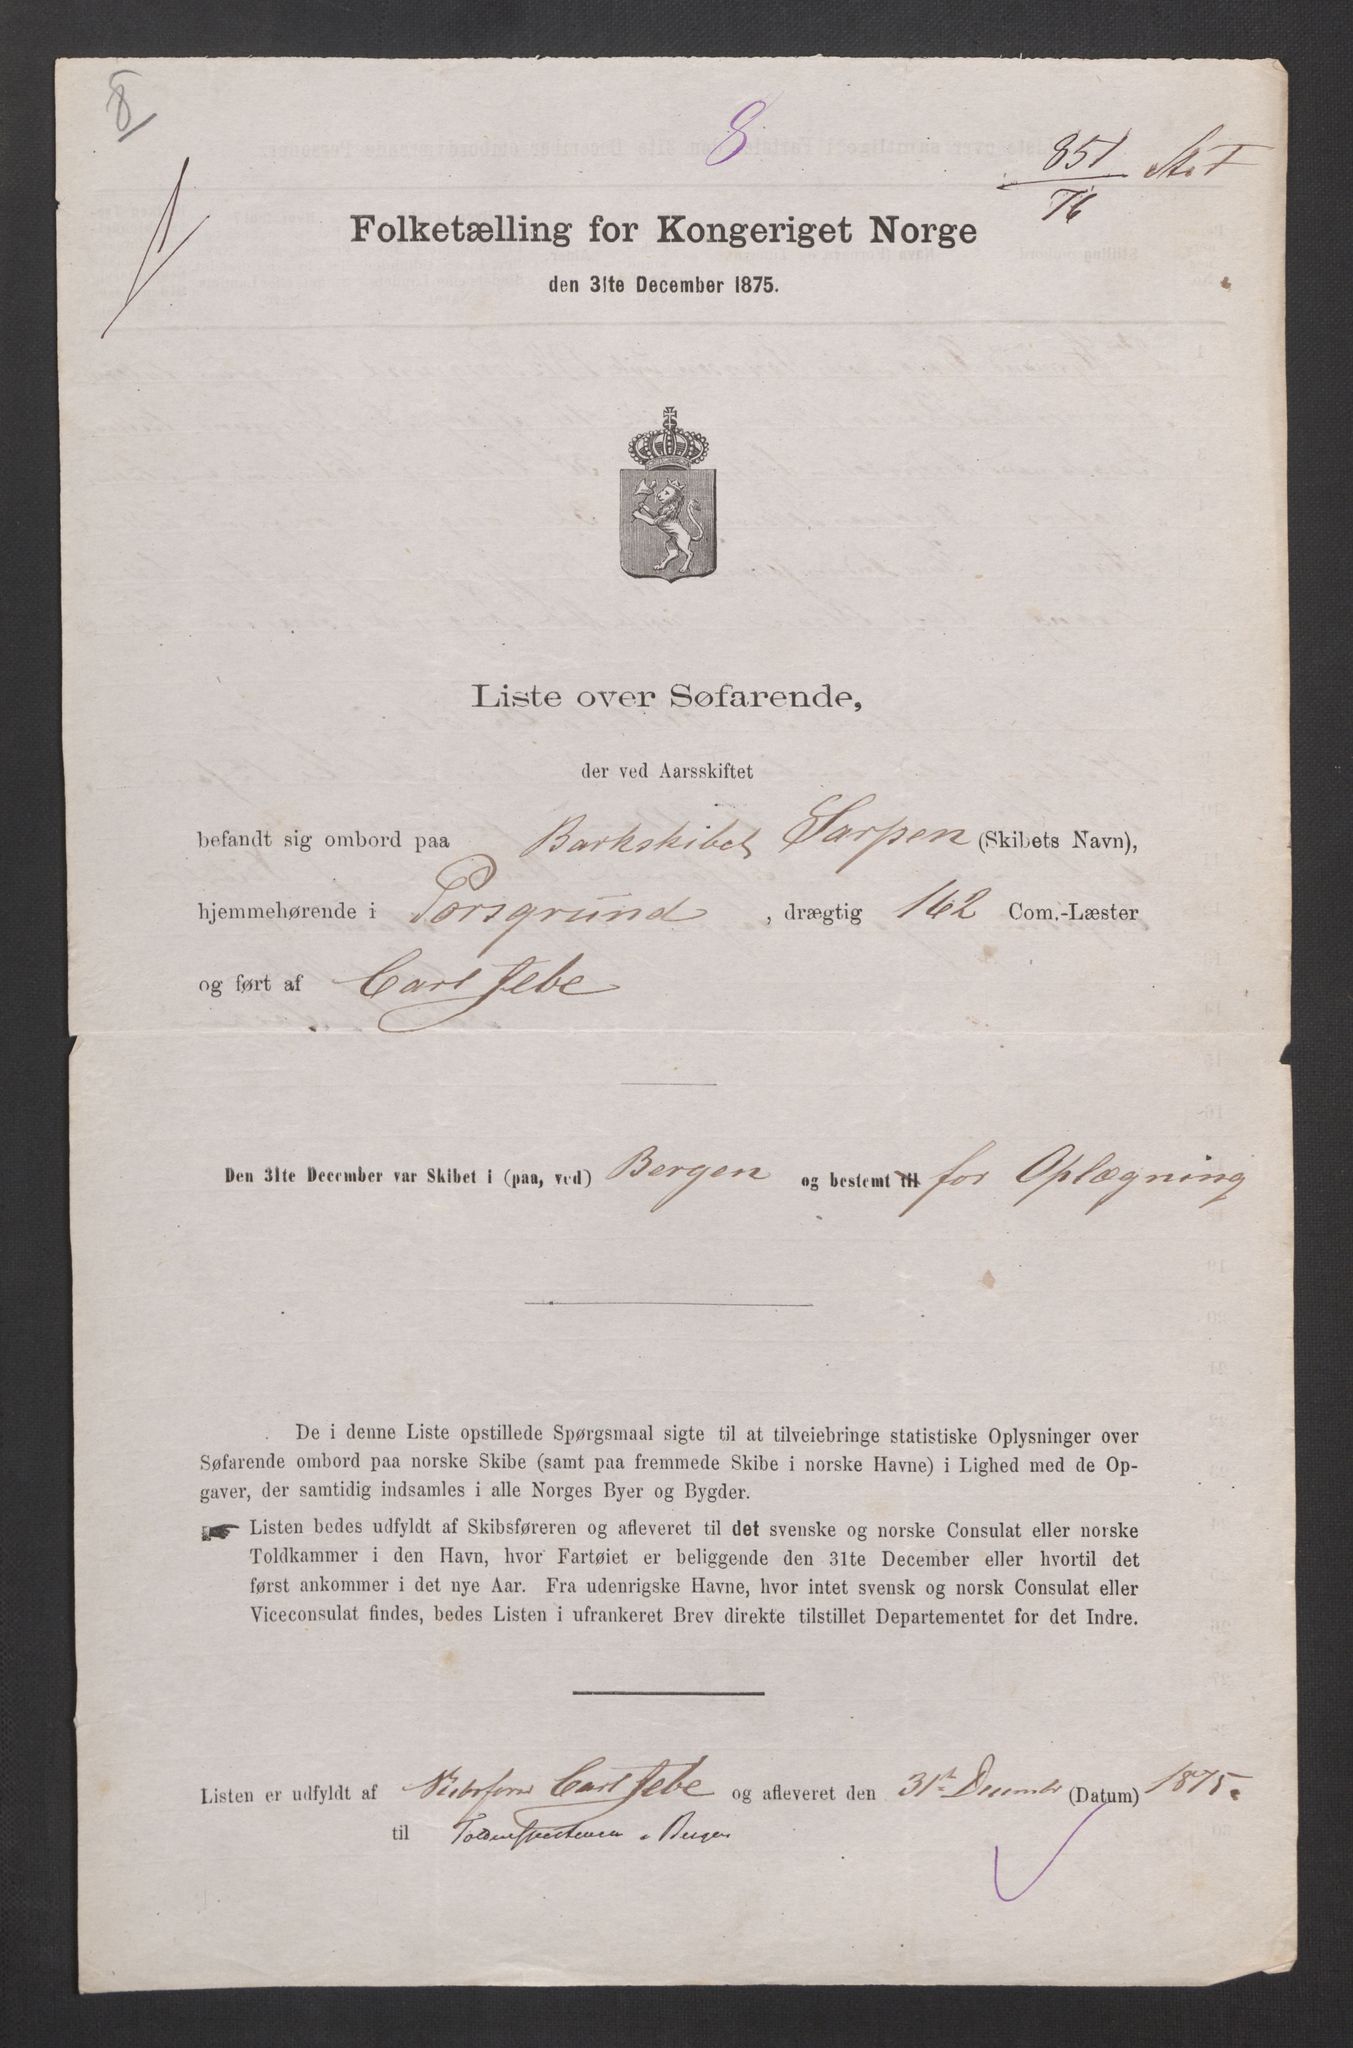 8
8
851
76
Folketælling for Kongeriget Norge
den 31te December 1875.
Liste over Søfarende,
der ved Aarsskiftet
befandt sig ombord paa Barkskibet Sarpen (Skibets Navn),
hjemmehørende i Porsgrund , drægtig 162 Com.-Læster
og ført af Carl Jebe
Den 31te December var Skibet i (paa, ved) Bergen og bestemt til for Oplægning
De i denne Liste opstillede Spørgsmaal sigte til at tilveiebringe statistiske Oplysninger over
Søfarende ombord paa norske Skibe (samt paa fremmede Skibe i norske Havne) i Lighed med de Op-
gaver, der samtidig indsamles i alle Norges Byer og Bygder.
Listen bedes udfyldt af Skibsføreren og afleveret til det svenske og norske Consulat eller norske
Toldkammer i den Havn, hvor Fartøiet er beliggende den 31te December eller hvortil det
først ankommer i det nye Aar. Fra udenrigske Havne, hvor intet svensk og norsk Consulat eller
Viceconsulat findes, bedes Listen i ufrankeret Brev direkte tilstillet Departementet for det Indre.
Listen er udfyldt af Carl Jebe og afleveret den 31te December (Datum) 1875.
til Bergen